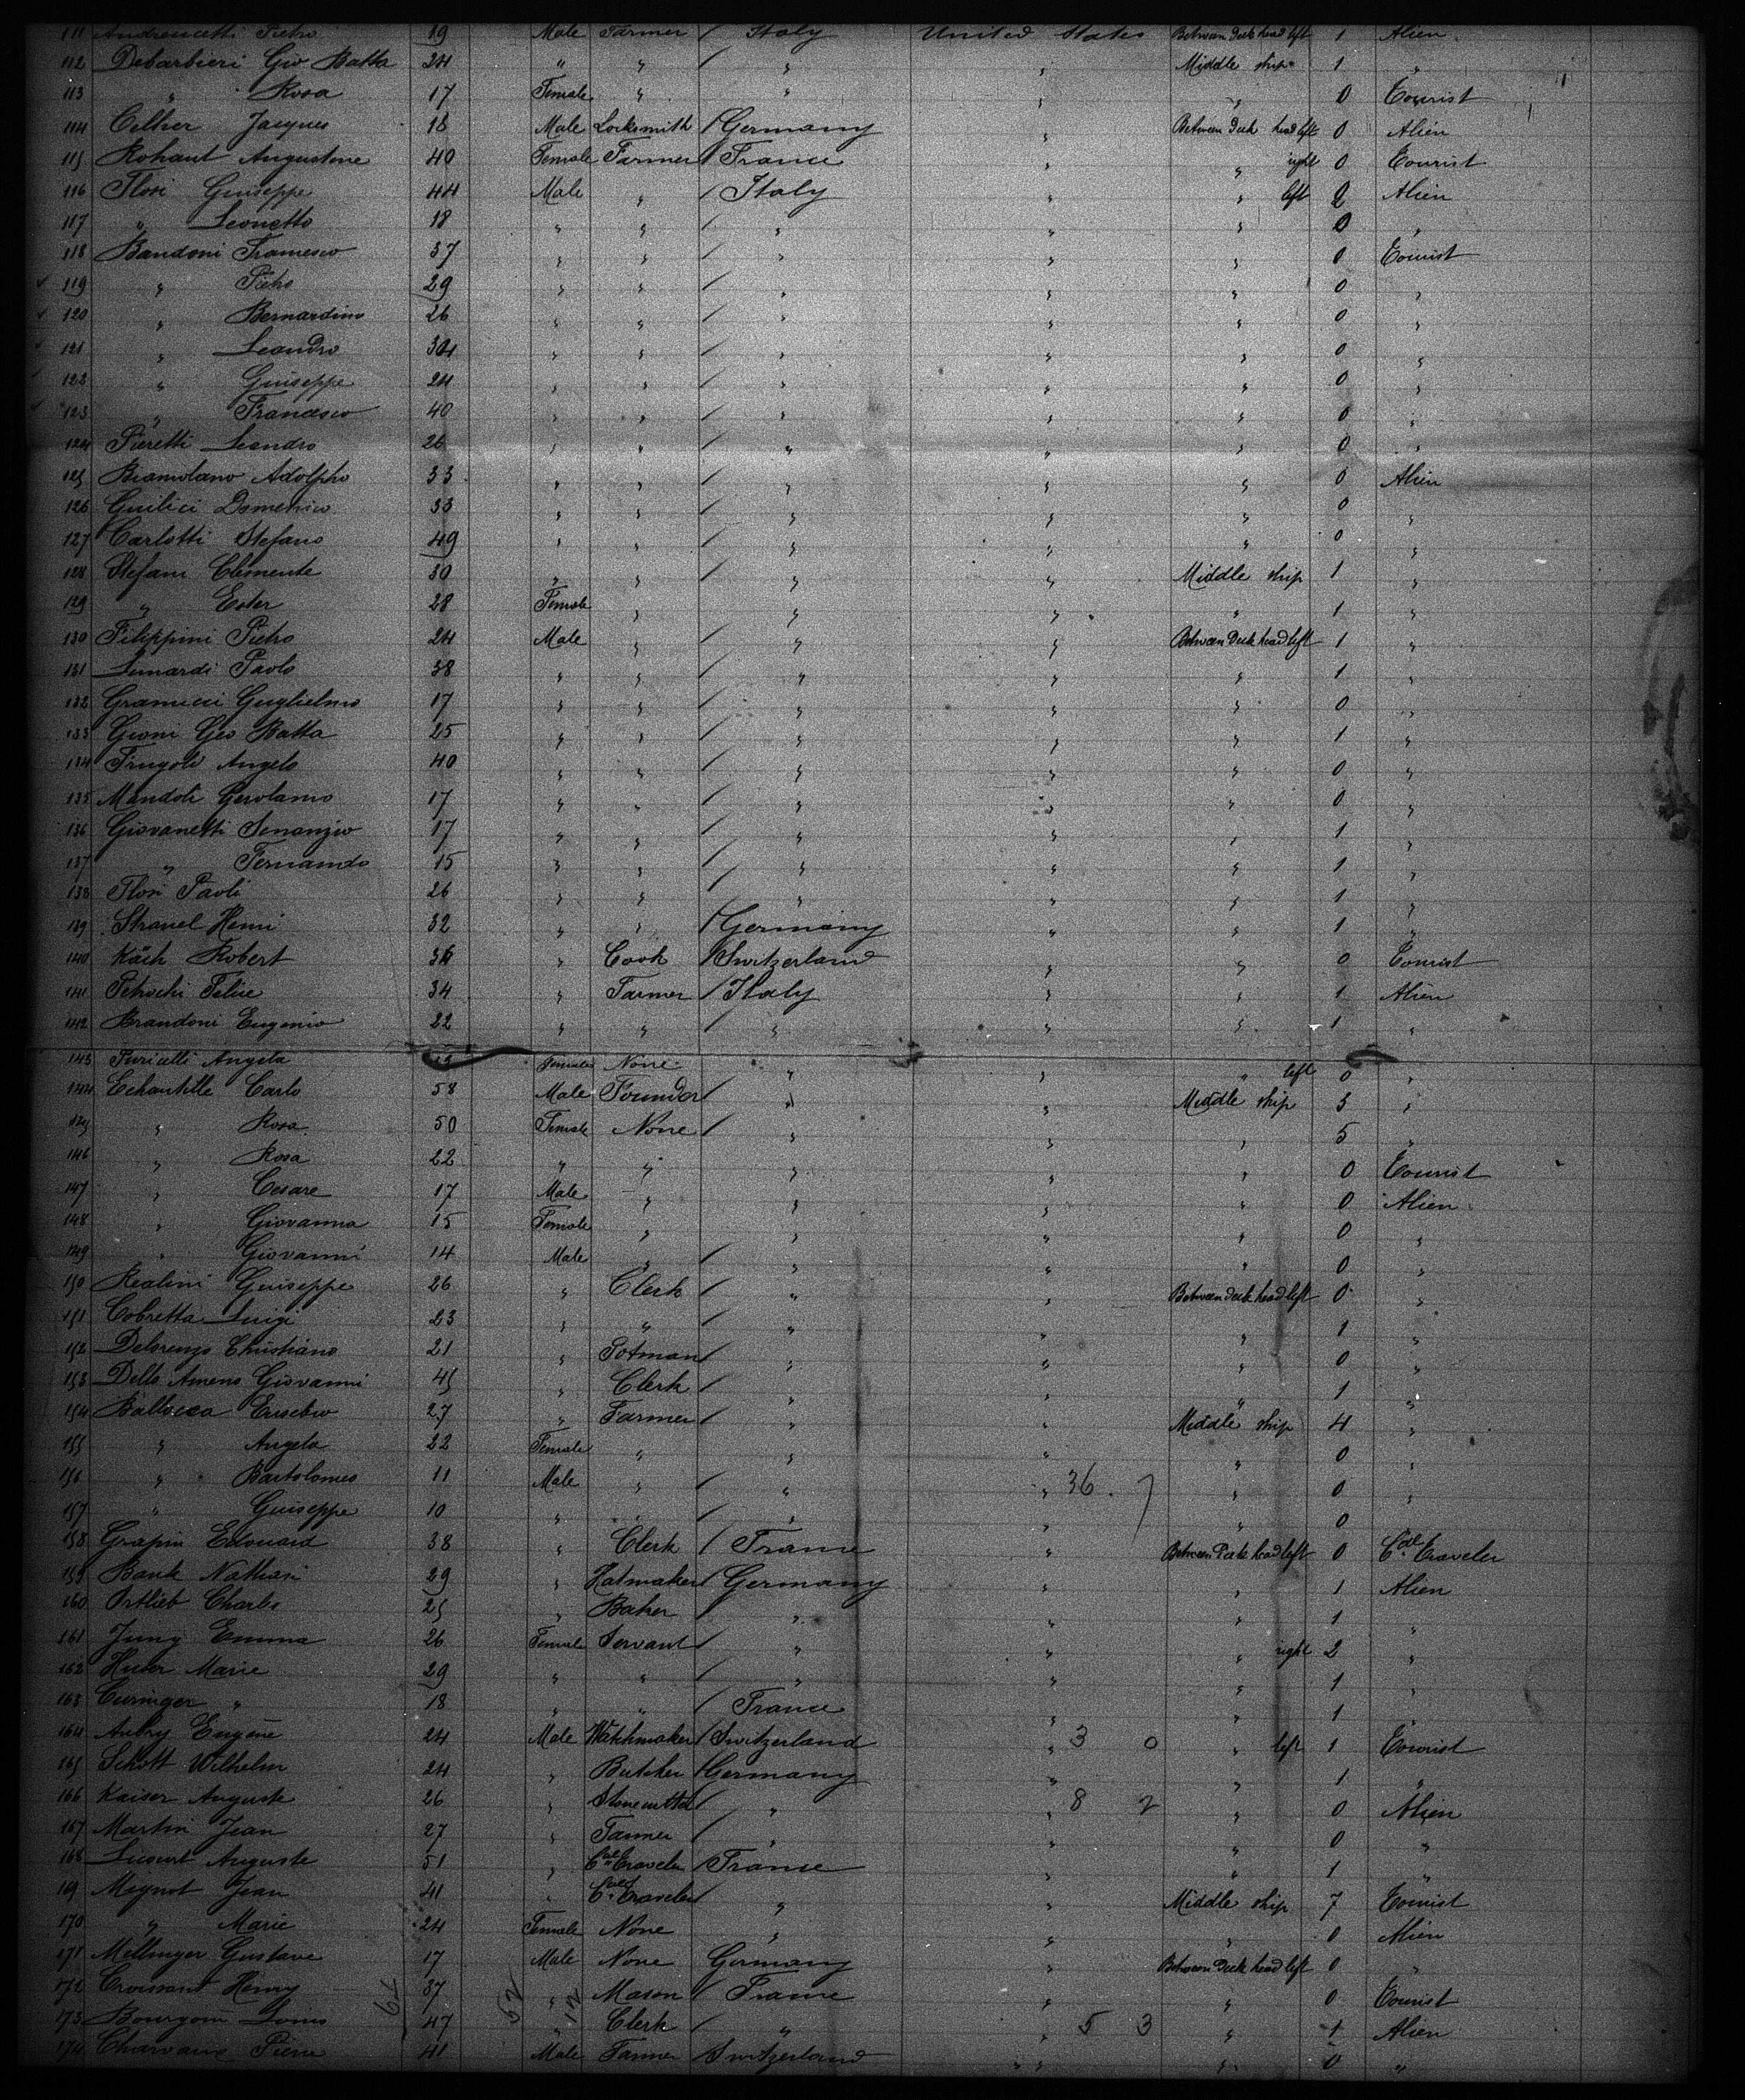 111 Andreucetti Pietro 19 Male Farmer / Italy United States Between Deck head left 1 Alien
112 Debarbieri Gio Batta 24 " " / " " Middle ship 1 "
113 " Rosa 17 Female " " " " 0 Tourist
114 Jacques 18 Male Locksmith / Germany " Between Deck head left 0 Alien
115 Rohaut Augustine 40 Female Farmer / France " " right 0 Tourist
116 Flosi Guiseppe 44 Male " / Italy " " left 2 Alien
117 " Leonetto 18 " " / " " " 0 "
118 Bandoni Francesco 37 " " / " " " 0 Tourist
119 " Pietro 29 " " / " " " 0 "
120 " Bernardino 26 " " / " " " 0 "
121 " Leandro 34 " " / " " " 0 "
122 " Guiseppe 24 " " / " " " 0 "
123 " Francesco 40 " " / " " " 0 "
124 Pieretti Leandro 26 " " / " " " 0 "
125 Adolpho 33 " " / " " " 0 Alien
126 Guilici Domenico 33 " " / " " " 0 "
127 Carlotti Stefano 49 " " / " " " 0 "
128 Stefani Clemente 30 " " / " " Middle ship 1 "
129 " Ester 28 Female " " " " 1 "
130 Filippini Pietro 24 Male " / " " Between Deck head left 1 "
131 Lunardi Paolo 38 " " / " " " 1 "
132 Gramucci Guglielmo 17 " " / " " " 0 "
133 Gioni Gio Batta 25 " " / " " " 1 "
134 Frugoli Angelo 40 " " / " " " 0 "
135 Mandoli Gerolamo 17 " " / " " " 0 "
136 Giovanetti 17 " " / " " " 1 "
137 " Fernando 15 " " / " " " 1 "
138 Flosi Paoli 26 " " / " " " 1 "
139 Henri 32 " " / Germany " " 1 "
140 Käch Robert 36 " Cook / Switzerland " " 0 Tourist
141 Petrochi Felice 34 " Farmer / Italy " " 1 Alien
142 Brandoni Eugenio 22 " " / " " " 1 "
143 Puricelli Angela Female None " " " left 0 "
144 Echantille Carlo 58 Male Founder / " " Middle ship 3 "
145 " Rosa 50 Female None / " " " 5 "
146 " Rosa 22 " " " " " 0 Tourist
147 " Cesare 17 Male " " " " 0 Alien
148 " Giovanna 15 Female " " " " 0 "
149 " Giovanni 14 Male " / " " " 0 "
150 Realini Guiseppe 26 " Clerk / " " Between deck head left 0 "
151 Cobretta Luigi 23 " " / " " " 1 "
152 Delorenzo Christiano 21 " Potman / " " " 0 "
153 Dello Ameno Giovanni 45 " Clerk / " " " 1 "
154 Ballocca Eusebio 27 " Farmer / " " Middle ship 4 "
155 " Angela 22 Female " " " " 0 "
156 " Bartolomeo 11 Male " / " " 36. 7 " 0 "
157 " Guiseppe 10 " " / " " " 0
158 Grapin Edouard 38 " Clerk / France " Between Deck head left 0 Cal Traveler
159 Bank Nathan 29 " Hatmaker / Germany " " 1 Alien
160 Ortlieb Charles 25 " Baker / " " " 1 "
161 Jung Emma 26 Female Servant / " " " right 2 "
162 Huber Marie 29 " " / " " " 1 "
163 " 18 " " / France " " 1 "
164 Aubry Eugène 24 Male Watchmaker / Switzerland " 3 0 " left 1 Tourist
165 Schott Wilhelm 24 " Butcher / Germany " " 1 "
166 Kaiser Auguste 26 " Stonecutter / " " 8 2 " 0 Alien
167 Martin Jean 27 " Farmer / " " " 0 "
168 Auguste 51 " Cal Traveler / France " " 1 "
169 Mognot Jean 41 " Cal Traveler / " " Middle ship 7 Tourist
170 " Marie 24 Female None " " " 0 Alien
171 Mellinger Gustave 17 Male None Germany " Between Deck head left 0 "
172 Croissant Henry 37 " Mason / France " " 0 Tourist
173 Bourgoin Louis 47 " Clerk / " " 5 3 " 1 Alien
174 Pierre 41 Male Farmer Switzerland " " " 0 "